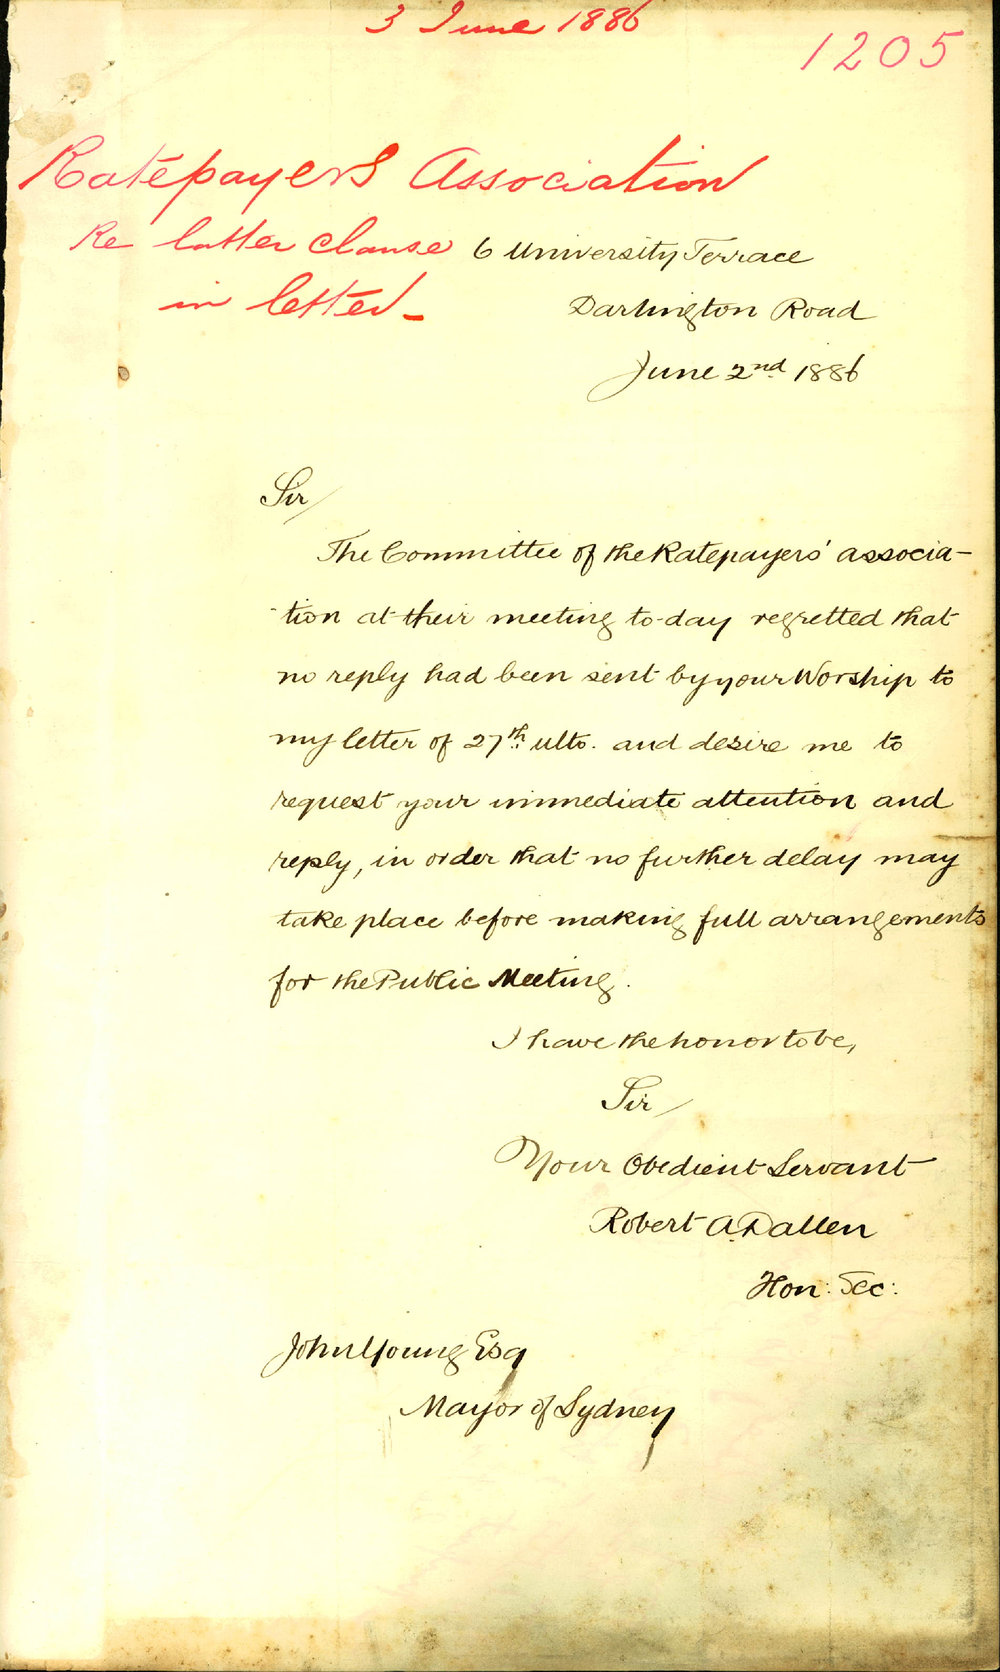 3 June 1886
1205
Ratepayers Association
Re latter clause
in letter
6 University Terrace
Darlington Road
June 2nd 1886
Sir/
The Committee of the Ratepayers' associa-
-tion at their meeting to-day regretted that
no reply had been sent by your Worship to
my letter of 27th ulto. and desire me to
request your immediate attention and
reply, in order that no further delay may
take place before making full arrangements
for the Public Meeting.
I have the honor to be,
Sir/
Your Obedient Servant
Robert A. Dallen
Hon: Sec:
John Young Esq
Mayor of Sydney